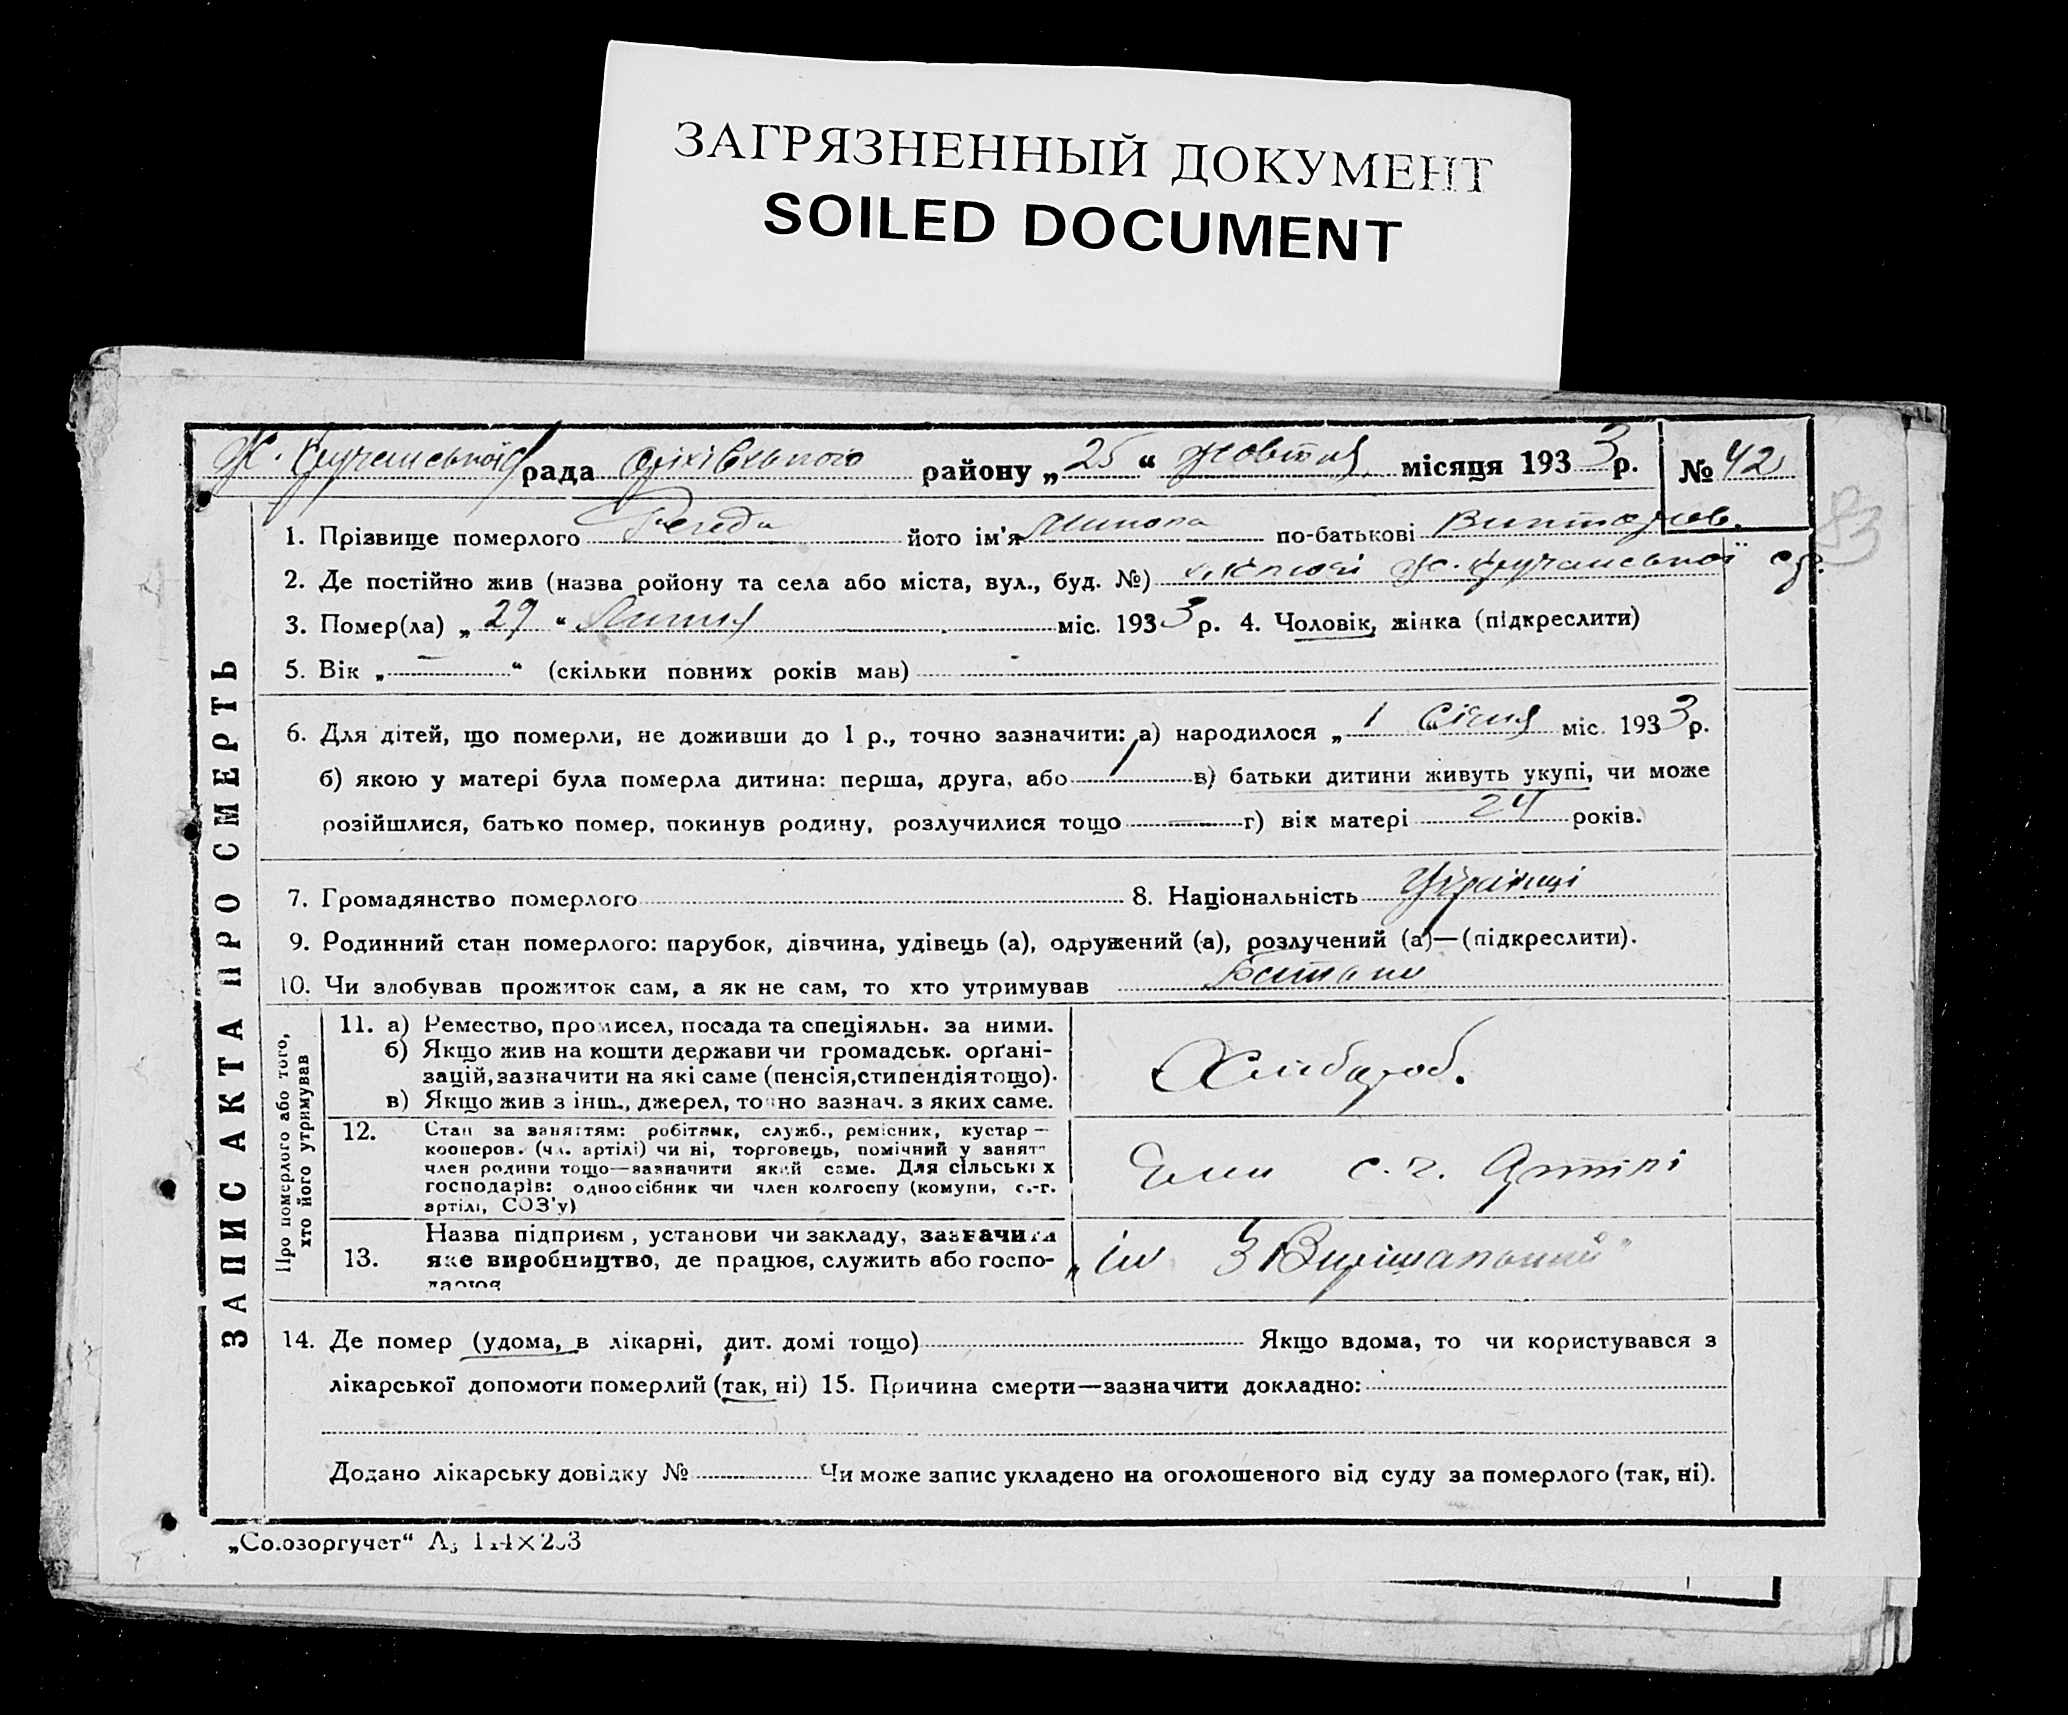 ЗАГРЯЗНЕННЫЙ ДОКУМЕНТ
SOILED DOCUMENT
рада Оріхівського району „25“ жовтня місяця 1933 р. № 42
83
1. Прізвище померлого його ім'я по-батькові
2. Де постійно жив (назва ройону та села або міста, вул., буд. №)
3. Помер(ла) „29“ Липня міс. 1933 р. 4. Чоловік, жінка (підкреслити)
5. Вік „—“ (скільки повних років мав) -
6. Для дітей, що померли, не доживши до 1 р., точно зазначити: а) народилося „1“ Січня міс. 1933 р.
б) якою у матері була померла дитина: перша, друга, або в) батьки дитини живуть укупі, чи може
розійшлися, батько помер, покинув родину, розлучилися тощо — г) вік матері 24 років.
7. Громадянство померлого 8. Національність
9. Родинний стан померлого: парубок, дівчина, удівець (а), одружений (а), розлучений (а)—(підкреслити).
10. Чи здобував прожиток сам, а як не сам, то хто утримував Батьки
ЗАПИС АКТА ПРО СМЕРТЬ
Про померлого або того,
хто його утримував
11. а) Ремество, промисел, посада та спеціяльн. за ними.
б) Якщо жив на кошти держави чи громадськ. орґані-
зацій, зазначити на які саме (пенсія, стипендія тощо).
в) Якщо жив з інш., джерел, точно зазнач. з яких саме.
Хлібороб.
12. Стан за заняттям: робітник, служб., ремісник, кустар —
кооперов. (чл. артілі) чи ні, торговець, помічний у занят
член родини тощо—зазначити який саме. Для сільських
господарів: одноосібник чи член колгоспу (комуни, с.-г.
артілі, СОЗ'у)
Член с. г. Артілі
13. Назва підприєм, установи чи закладу, зазначити
яке виробництво, де працює, служить або госпо-
дарює
„ім 3 Вирішальний“
14. Де помер (удома, в лікарні, дит. домі тощо) Якщо вдома, то чи користувався з
лікарської допомоги померлий (так, ні) 15. Причина смерти—зазначити докладно:
Додано лікарську довідку № Чи може запис укладено на оголошеного від суду за померлого (так, ні).
„Союзоргучет“